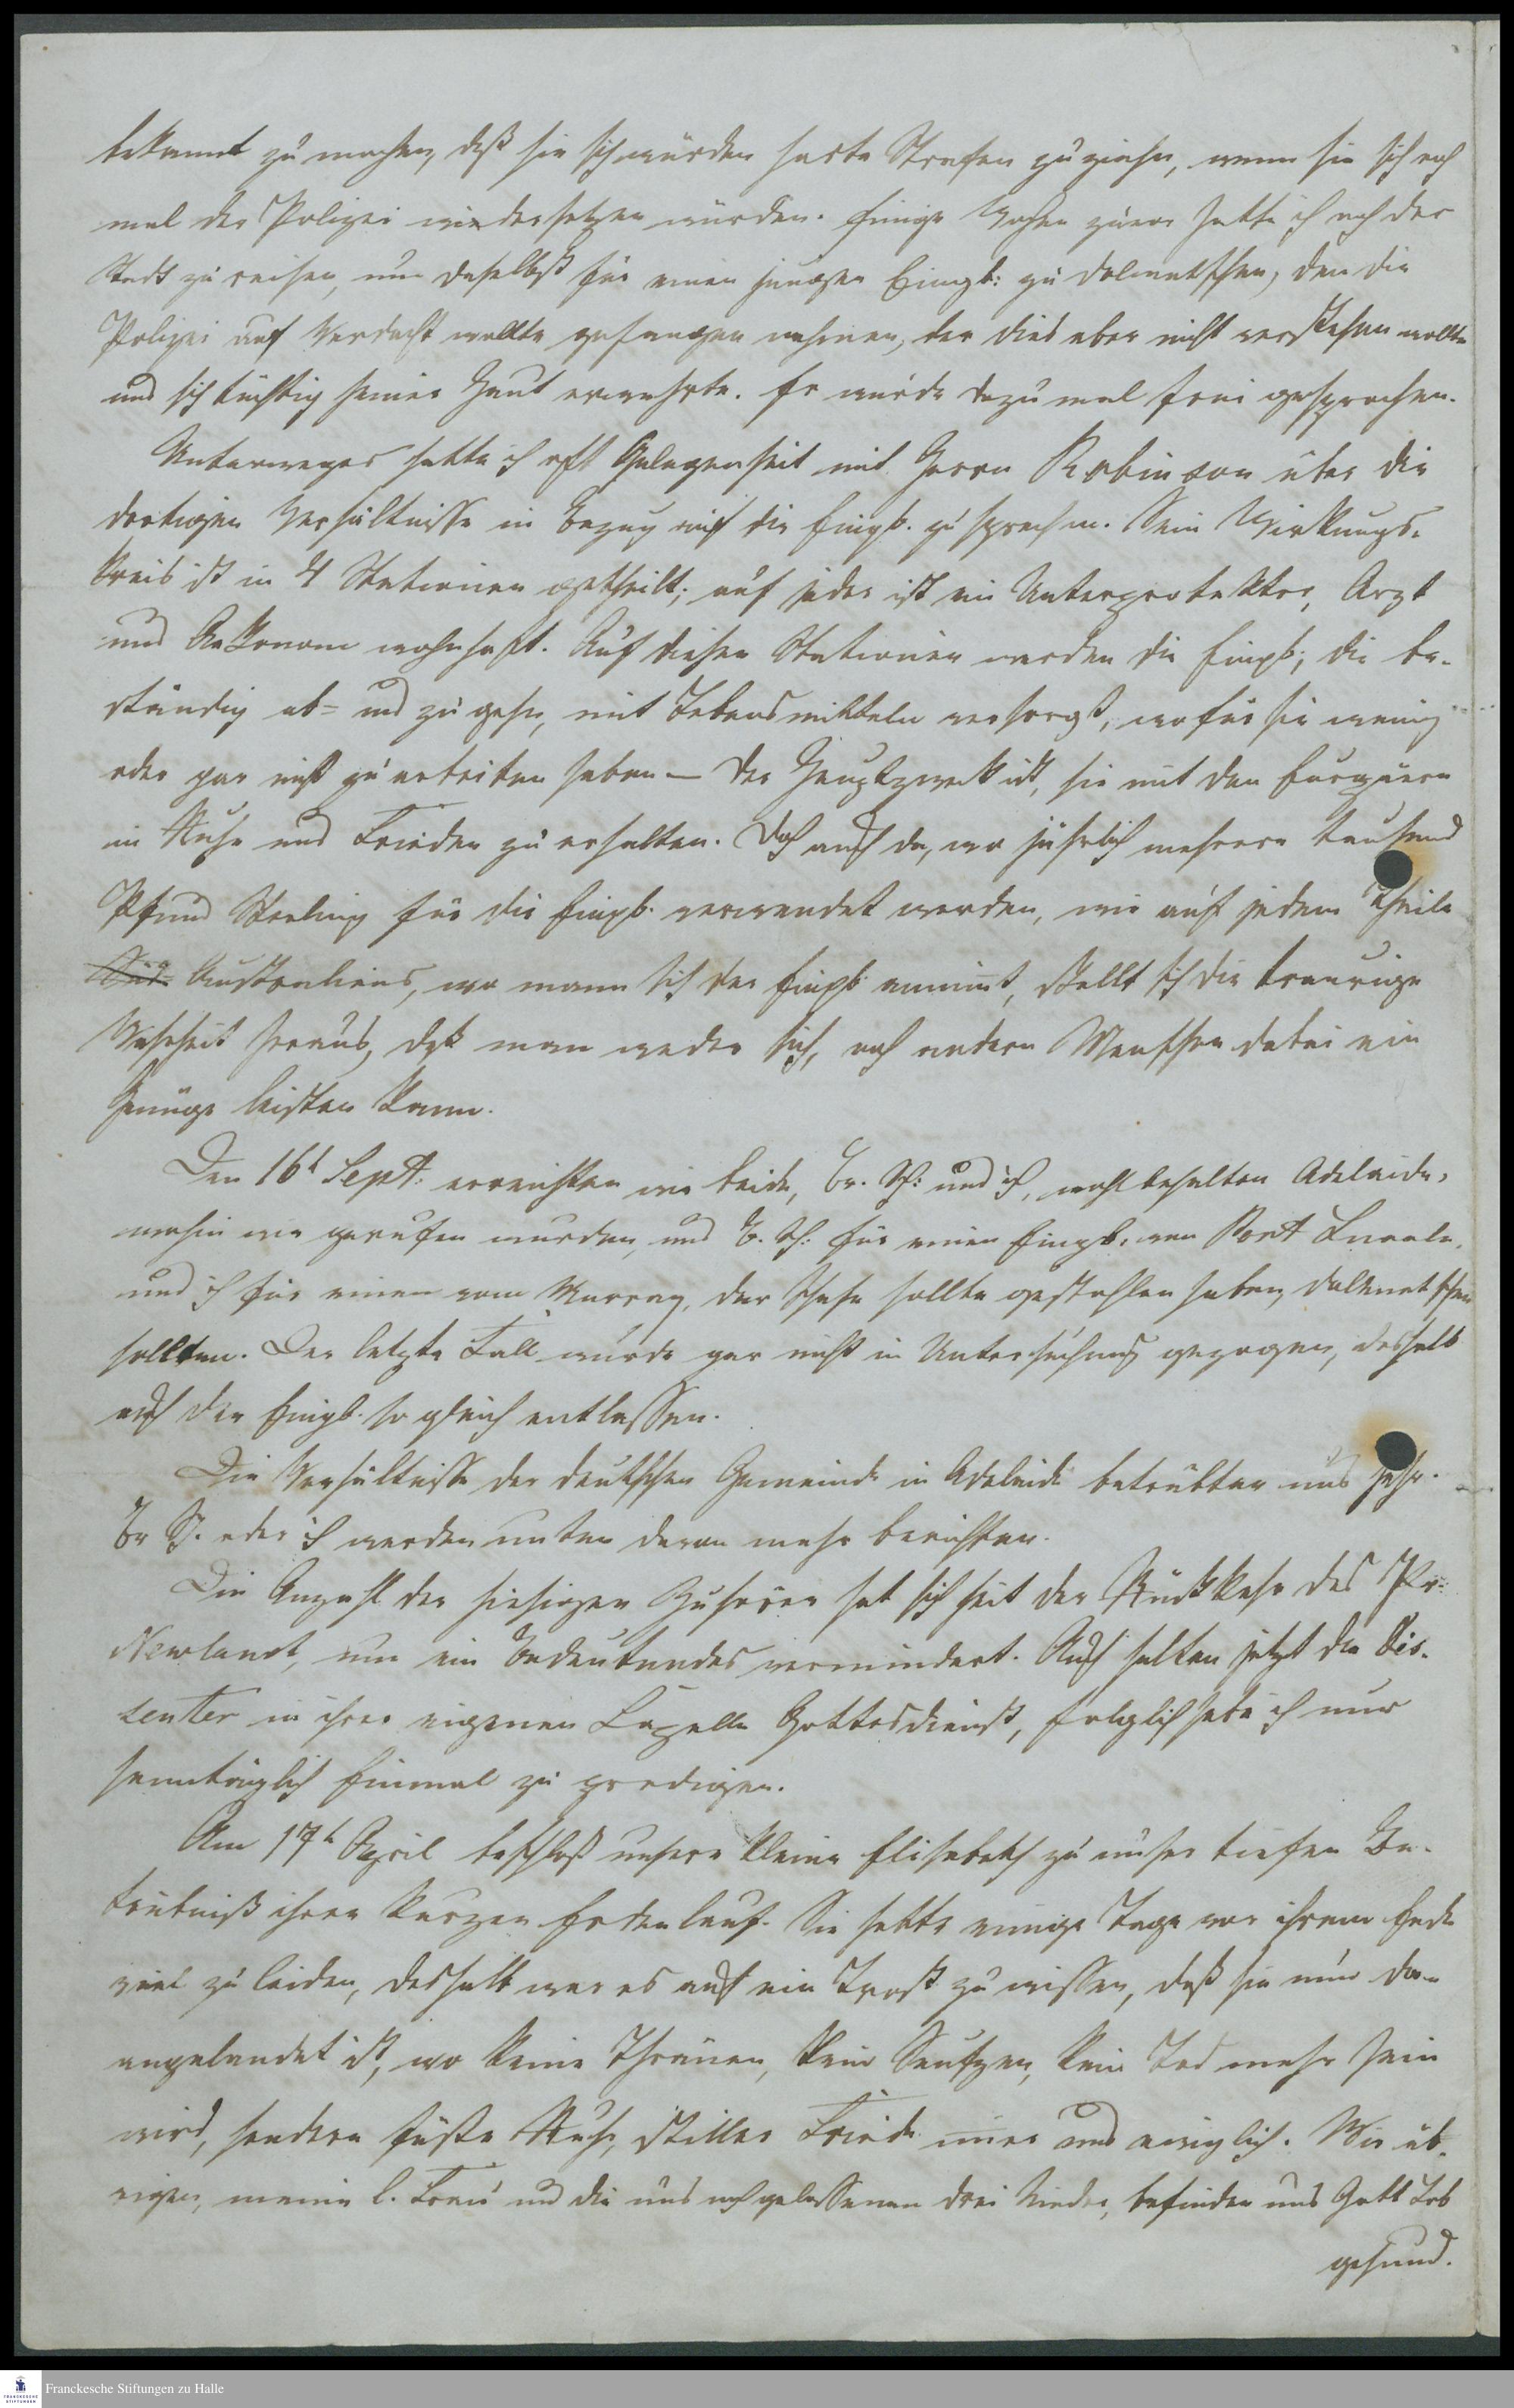 bekannt zu machen, daß sie sich würden harte Strafen zuziehn, wenn sie sich noch
mal der Polizei wiedersetzen würden. Einige Wochen zuvor hatte ich nach der
Stadt zu reisen, um daselbst für einen jungen Eingb: zu dolmetschen, den die
Polizei auf Verdacht wollte gefangen nehmen, der dies aber nicht verstehen wollte
und sich tüchtig seiner Haut erwehrte. Er wurde dazumal frei gesprochen.
Unterweges hatte ich oft Gelegenheit mit Herrn Robinson über die
dortigen Verhältnisse in Bezug auf die Eingb. zu sprechen. Sein Wirkungs-
kreis ist in 4 Stationen getheilt; auf jeder ist ein Unterprotektor, Arzt
und Oekonom wohnhaft. Auf diesen Stationen werden die Eingb; die be-
ständig ab= und zu gehn, mit Lebensmitteln versorgt, wofür sie wenig
oder gar nicht zu arbeiten haben – der Hauptzweck ist, sie mit den Europäern
in Ruhe und Frieden zu erhalten. Doch auch da, wo jährlich mehrere tausend
Pfund Sterling für die Eingb. verwendet werden, wie auf jedem Theile
Süd- Australiens, wo mann sich der Eingb. annimt, stellt sich die traurige
Wahrheit heraus, daß man weder sich, noch andern Menschen dabei ein
Genüge leisten kann.
Den 16t Sept. erreichten wir beide, Br. Sch: und ich, wohlbehalten Adelaide,
wohin wir gerufen wurden, und B. Sch: für einen Eingb. von Port Lincoln,
und ich für einen vom Murray, der Schafe sollte gestohlen haben, dolmetschen
sollten. Der letzte Fall wurde gar nicht in Untersuchung gezogen, deshalb
auch der Eingb. so gleich entlassen.
Die Verhältnisse der deutschen Gemeinde in Adelaide betrübten uns sehr.
Br S. oder ich werden unten davon mehr berichten.
Die Anzahl der hiesigen Zuhörer hat sich seit der Rückkehr des Pr:
Newland, um ein Bedeutendes vermindert. Auch halten jetzt die Dis-
senter in ihrer eigenen Capelle Gottesdienst, folglich habe ich nur
sonntäglich Einmal zu predigen.
Am 17t April beschloß unsere kleine Elisabeth zu unser tiefen Be-
trübniß ihren kurzen Erdenlauf. Sie hatte einige Tage vor ihrem Ende
viel zu leiden, deshalb war es auch ein Trost zu wissen, daß sie nun da
angelandet ist, wo keine Thränen, kein Seufzen, kein Tod mehr sein
wird, sondern süße Ruhe, stiller Friede immer und ewiglich. Wir üb-
rigen, meine l. Frau und die uns nachgelassenen drei Kinder, befinden uns Gott Lob
gesund.
Franckesche Stiftungen zu Halle